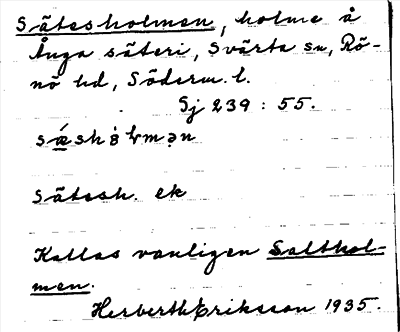 Sätesholmen, holme å
Ånga säteri, Svärta sn, Rö-
nö hd, Söderm. l.
Sj 239 : 55.
Sätesh. ek
Kallas vanligen Salthol-
men.
Herberth Eriksson 1935.